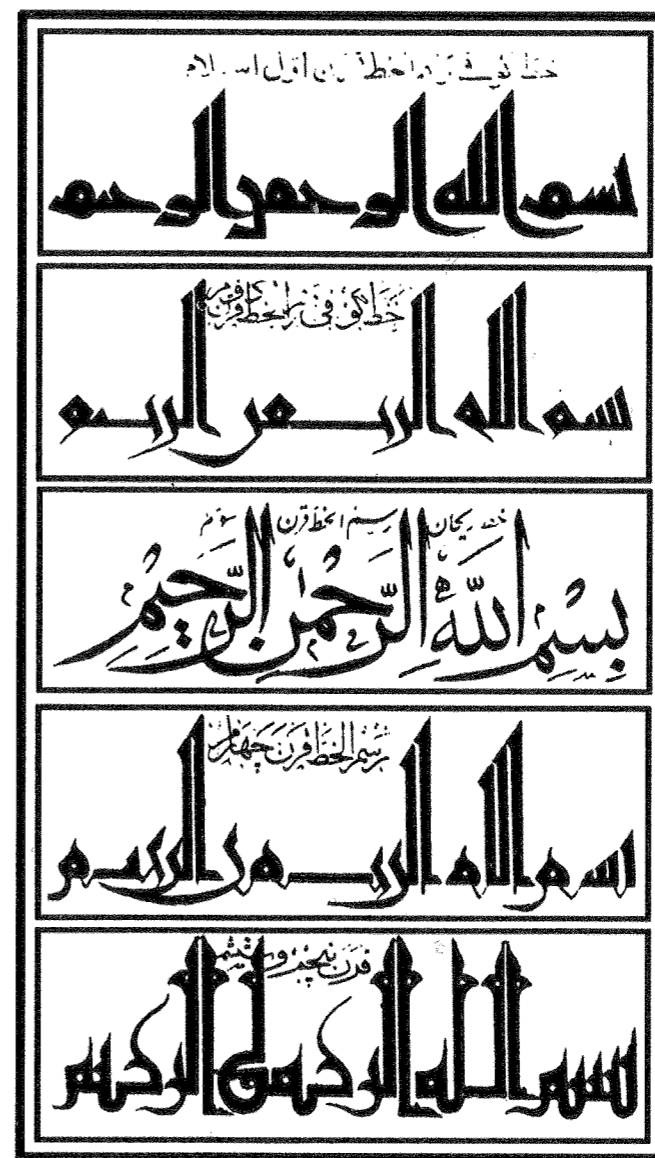 خط کوفی رسم الخط قرن اول اسلام
بسم الله الرحمن الرحيم
خط کوفی رسم الخط قرن دوم
بسم الله الرحمن الرحيم
خط ریحان رسم الخط قرن سوم
بِسْمِ اللَّهِ الرَّحْمٰنِ الرَّحِيمِ
رسم الخط قرن چهارم
بسم الله الرحمن الرحيم
قرن پنجم و ششم
بسم الله الرحمن الرحيم